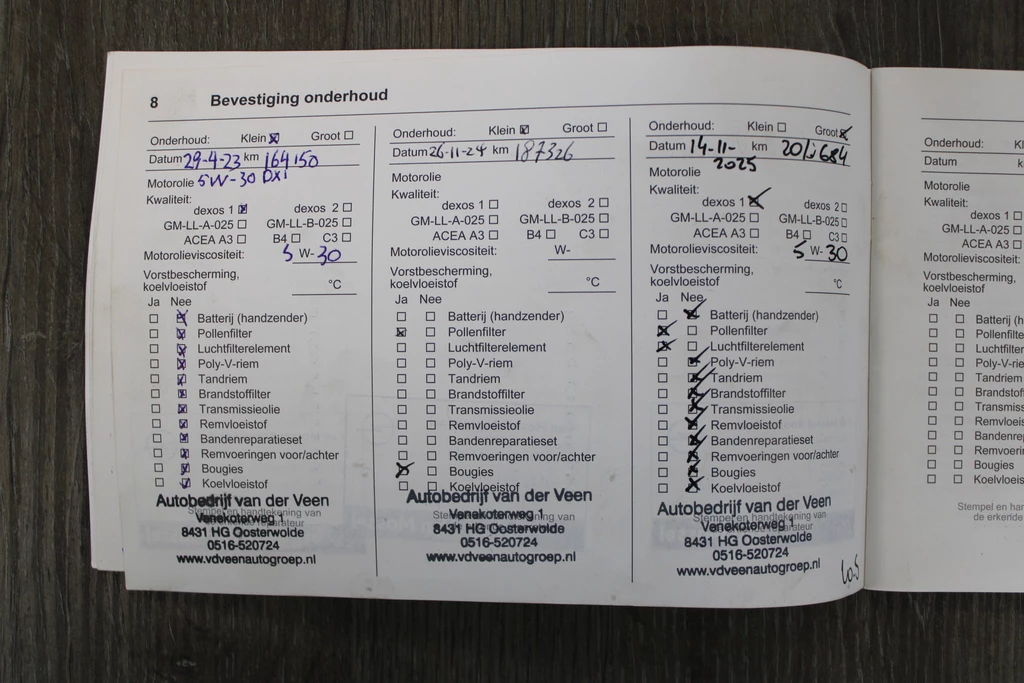 8 Bevestiging onderhoud
Onderhoud: Klein ☒ Groot ☐
Datum 29-4-23 km 164150
Motorolie 5W-30 DX1
Kwaliteit:
dexos 1 ☒ dexos 2 ☐
GM-LL-A-025 ☐ GM-LL-B-025 ☐
ACEA A3 ☐ B4 ☐ C3 ☐
Motorolieviscositeit: 5 W- 30
Vorstbescherming,
koelvloeistof °C
Ja Nee
☐ ☒ Batterij (handzender)
☐ ☒ Pollenfilter
☐ ☒ Luchtfilterelement
☐ ☒ Poly-V-riem
☐ ☒ Tandriem
☐ ☒ Brandstoffilter
☐ ☒ Transmissieolie
☐ ☒ Remvloeistof
☐ ☒ Bandenreparatieset
☐ ☒ Remvoeringen voor/achter
☐ ☒ Bougies
☐ ☒ Koelvloeistof
Autobedrijf van der Veen
Stempel en handtekening van
Venekoterweg 1
8431 HG Oosterwolde
0516-520724
www.vdveenautogroep.nl
Onderhoud: Klein ☒ Groot ☐
Datum 26-11-24 km 187326
Motorolie
Kwaliteit:
dexos 1 ☐ dexos 2 ☐
GM-LL-A-025 ☐ GM-LL-B-025 ☐
ACEA A3 ☐ B4 ☐ C3 ☐
Motorolieviscositeit: W-
Vorstbescherming,
koelvloeistof °C
Ja Nee
☐ ☐ Batterij (handzender)
☒ ☐ Pollenfilter
☐ ☐ Luchtfilterelement
☐ ☐ Poly-V-riem
☐ ☐ Tandriem
☐ ☐ Brandstoffilter
☐ ☐ Transmissieolie
☐ ☐ Remvloeistof
☐ ☐ Bandenreparatieset
☐ ☐ Remvoeringen voor/achter
☒ ☐ Bougies
☐ ☐ Koelvloeistof
Autobedrijf van der Veen
Venekoterweg 1
8431 HG Oosterwolde
0516-520724
www.vdveenautogroep.nl
Onderhoud: Klein ☐ Groot ☒
Datum 14-11- km
2025
Motorolie
Kwaliteit:
dexos 1 ☒ dexos 2 ☐
GM-LL-A-025 ☐ GM-LL-B-025 ☐
ACEA A3 ☐ B4 ☐ C3 ☐
Motorolieviscositeit: 5 W- 30
Vorstbescherming,
koelvloeistof °C
Ja Nee
☐ ☒ Batterij (handzender)
☒ ☐ Pollenfilter
☒ ☐ Luchtfilterelement
☐ ☒ Poly-V-riem
☐ ☒ Tandriem
☐ ☒ Brandstoffilter
☐ ☒ Transmissieolie
☐ ☒ Remvloeistof
☐ ☒ Bandenreparatieset
☐ ☒ Remvoeringen voor/achter
☐ ☒ Bougies
☐ ☒ Koelvloeistof
Autobedrijf van der Veen
Stempel en handtekening van
Venekoterweg 1
8431 HG Oosterwolde
0516-520724
www.vdveenautogroep.nl
Onderhoud: Kl
Datum k
Motorolie
Kwaliteit:
dexos 1 ☐
GM-LL-A-025 ☐
ACEA A3 ☐
Motorolieviscositeit:
Vorstbescherming,
koelvloeistof
Ja Nee
☐ ☐ Batterij (h
☐ ☐ Pollenfilte
☐ ☐ Luchtfilter
☐ ☐ Poly-V-rie
☐ ☐ Tandriem
☐ ☐ Brandstoff
☐ ☐ Transmiss
☐ ☐ Remvloeis
☐ ☐ Bandenrep
☐ ☐ Remvoerin
☐ ☐ Bougies
☐ ☐ Koelvloeis
Stempel en har
de erkende